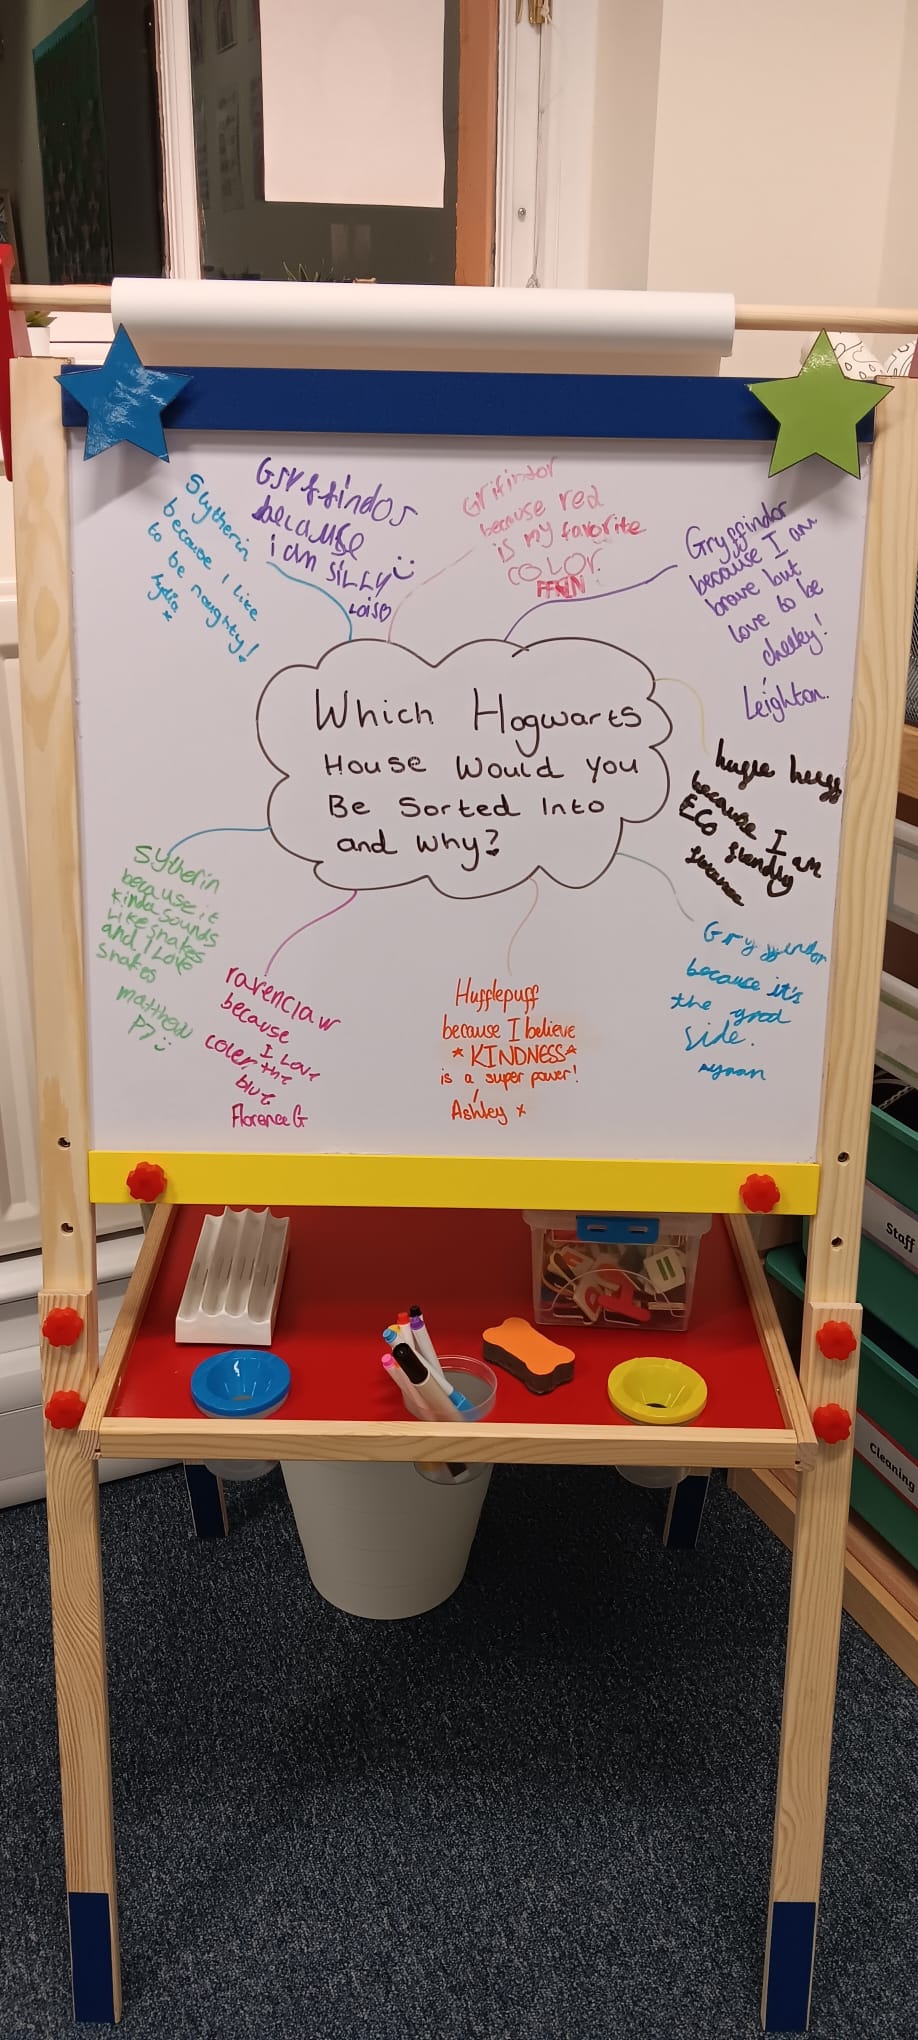 Which Hogwarts
House Would You
Be Sorted Into
and Why?
Slytherin
because I like
to be naughty!
Lydia
x
Gryffindor
because
i am SiLLy
LOIS
Grifindor
because red
is my favorite
COLOR.
FINN
Gryffindor
because I am
brave but
love to be
cheeky!
Leighton.
because I am
ECO
Gryffindor
because it's
the good
side.
Ayaan
Hufflepuff
because I believe
*KINDNESS*
is a super power!
Ashley x
ravenclaw
because
I Love
coler the
blue
Florence G
Sytherin
because it
kinda sounds
Like snakes
and I Love
snakes
matthew
P7
Staff
Cleaning